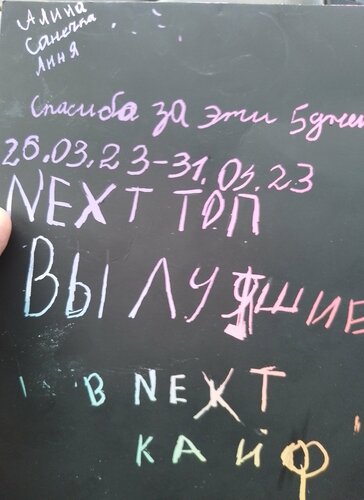 Алина
Санечка
Линя
Спасиба за эти 5 дней
26.03.23-31.03.23
NEXT ТОП
ВЫ ЛУЧШИЕ
В NEXT
КАЙФ